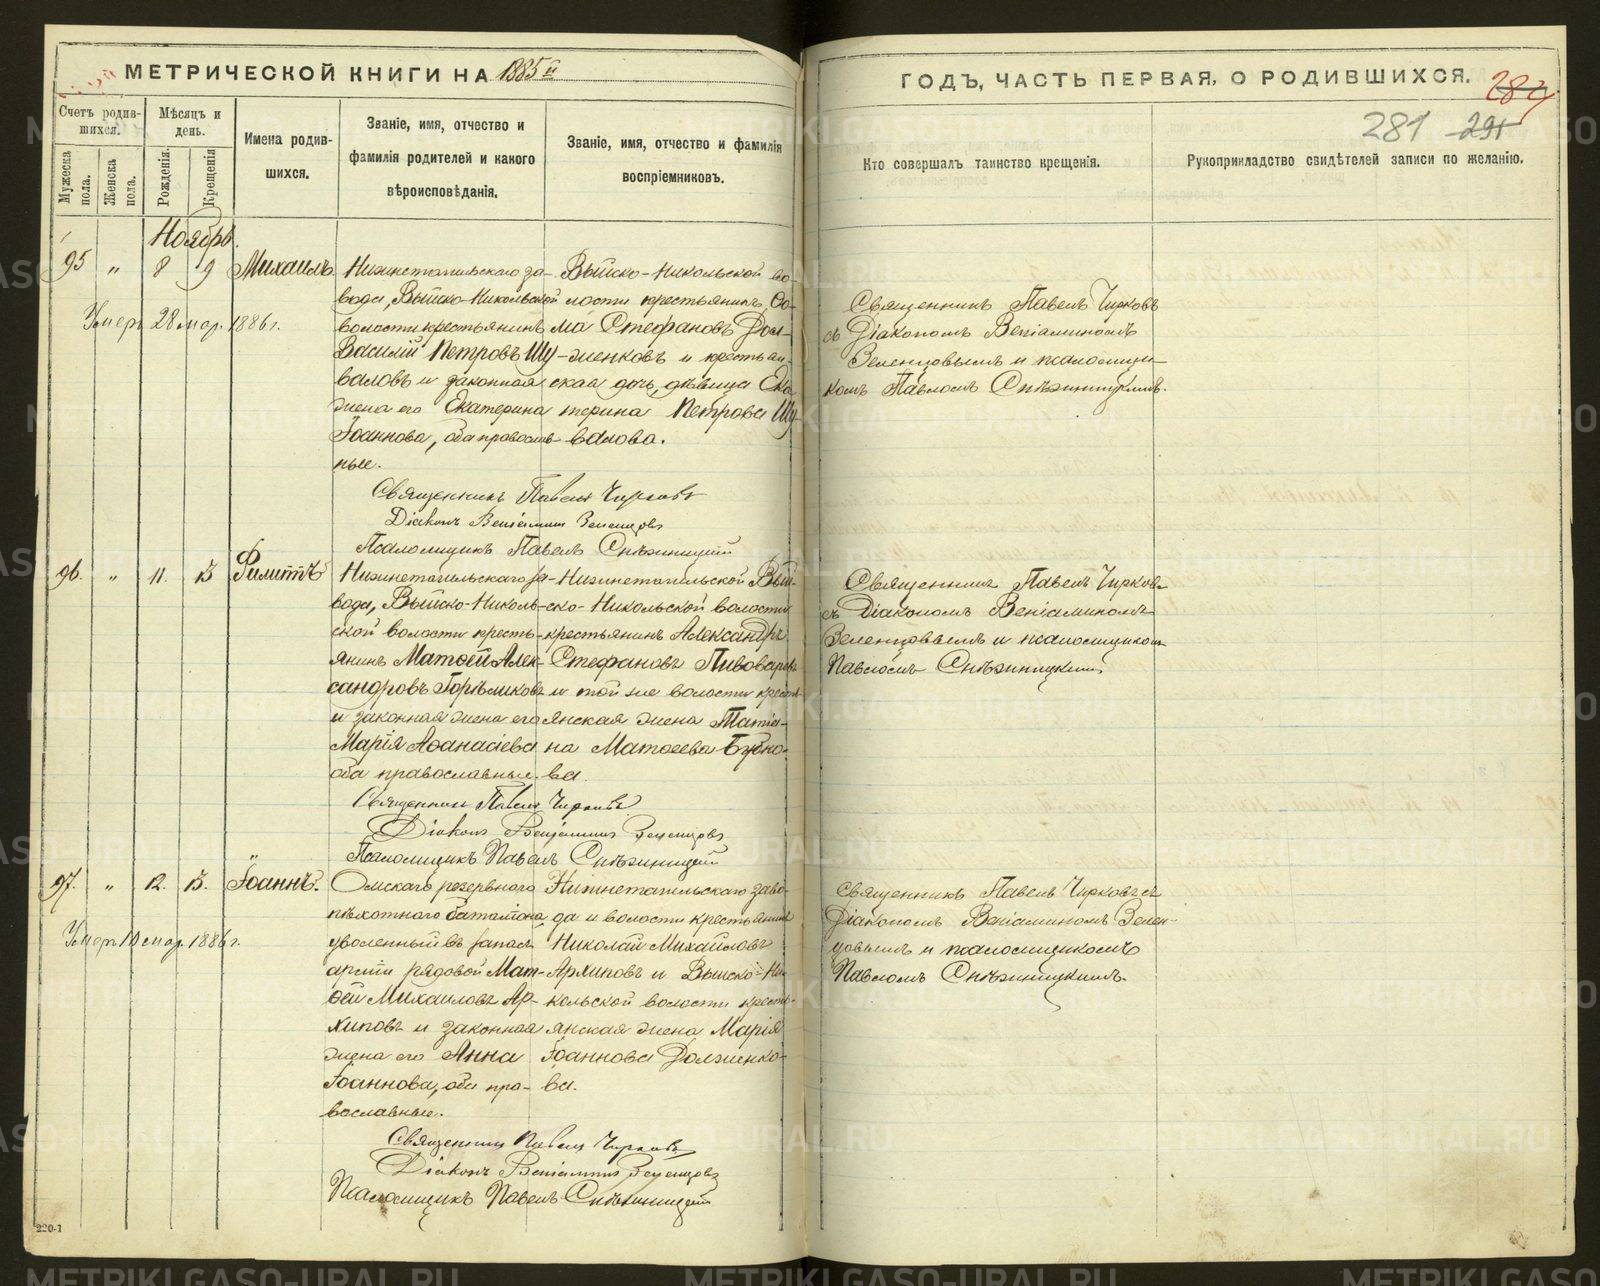 МЕТРИЧЕСКОЙ КНИГИ НА 1885й
ГОДЪ, ЧАСТЬ ПЕРВАЯ, О РОДИВШИХСЯ.
281
Счетъ родив-
шихся.
Мужеска пола.
Женска пола.
Мѣсяцъ и
день.
Рожденія.
Крещенія
Имена родив-
шихся.
Званіе, имя, отчество и
фамилія родителей и какого
вѣроисповѣданія.
Званіе, имя, отчество и фамилія
воспріемниковъ.
Кто совершалъ таинство крещенія.
Рукоприкладство свидѣтелей записи по желанію.
Ноябрь.
95 " 8 9 Михаилъ
Умеръ 28 мар. 1886 г.
Нижнетагильскаго за-
вода, Выйско-Никольской
волости крестьянинъ
Василій Петровъ Шу-
валовъ и законная
жена его Екатерина
Іоаннова, оба православ-
ные.
Выйско-Никольской во-
лости крестьянинъ Ѳо-
ма Стефановъ Дол-
женковъ и крестьян-
ская дочь, дѣвица Ека
терина Петрова Шу-
валова.
Священникъ Павелъ Чирковъ
съ Діакономъ Веніаминомъ
Зеленцовымъ и псаломщи-
комъ Павломъ Снѣжницкимъ.
Священникъ Павелъ Чирковъ
Діаконъ Веніаминъ Зеленцовъ
Псаломщикъ Павелъ Снѣжницкій
96. " 11. 13 Филиппъ
Нижнетагильскаго за-
вода, Выйско-Николь-
ской волости кресть-
янинъ Матѳей Алек-
сандровъ Горѣликовъ
и законная жена его
Марія Аѳанасіева
оба православные.
Нижнетагильской Вый-
ско-Никольской волости
крестьянинъ Александръ
Стефановъ Пивоваровъ
и той же волости кресть-
янская жена Татіа-
на Матѳеева Бубно-
ва.
Священникъ Павелъ Чирковъ
съ Діакономъ Веніаминомъ
Зеленцовымъ и псаломщикомъ
Павломъ Снѣжницкимъ
Священникъ Павелъ Чирковъ
Діаконъ Веніаминъ Зеленцовъ
Псаломщикъ Павелъ Снѣжницкій
97. " 12. 13. Іоаннъ.
Умеръ 10 мар. 1886 г.
Омскаго резервнаго
пѣхотнаго баталіона
уволенный въ запасъ
арміи рядовой Мат-
ѳей Михаиловъ Ар-
хиповъ и законная
жена его Анна
Іоаннова, оба пра-
вославные.
Нижнетагильскаго заво-
да и волости крестьянинъ
Николай Михайловъ
Архиповъ и Выйско-Ни-
кольской волости кресть-
янская жена Марія
Іоаннова Долженко-
ва.
Священникъ Павелъ Чирковъ съ
Діакономъ Веніаминомъ Зелен-
цовымъ и псаломщикомъ
Павломъ Снѣжницкимъ.
Священникъ Павелъ Чирковъ
Діаконъ Веніаминъ Зеленцовъ
Псаломщикъ Павелъ Снѣжницкій
220-1
METRIKI.GASO-URAL.RU